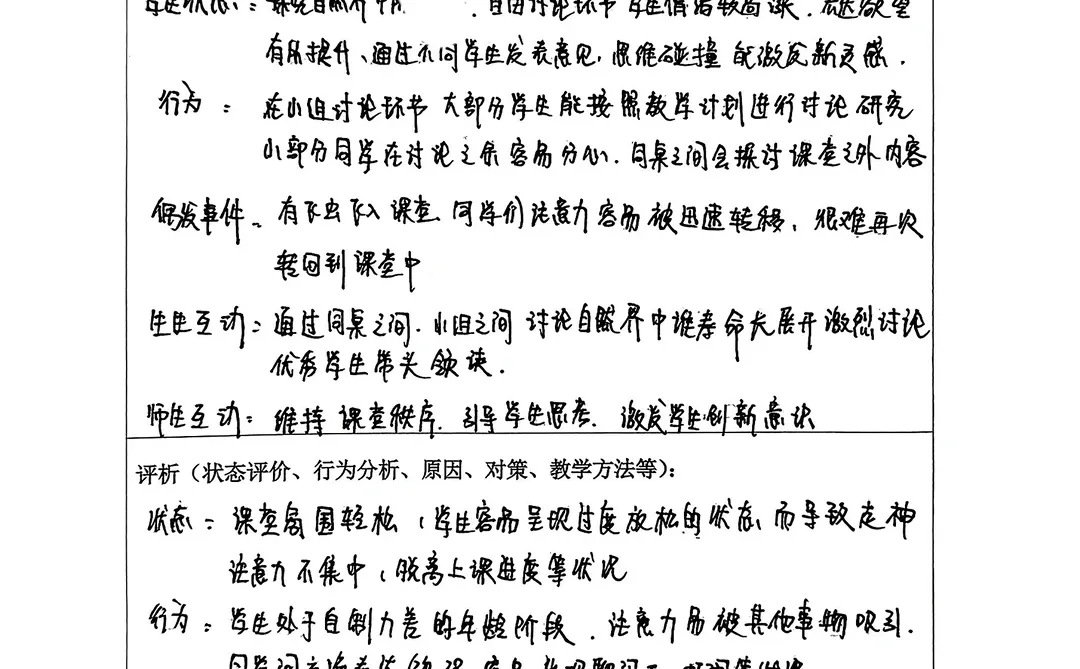 学生状态：课堂自然界中 自由讨论环节学生情绪较高涨、表达欲望
有所提升、通过不同学生发表意见，思维碰撞 能激发新灵感．
行为： 在小组讨论环节 大部分学生能按照教学计划进行讨论研究
小部分同学在讨论之余容易分心．同桌之间会探讨课堂之外内容
偶发事件、有飞虫飞入课堂、同学们注意力容易被迅速转移，很难再次
转回到课堂中
生生互动：通过同桌之间．小组之间讨论自然界中谁寿命长展开激烈讨论
优秀学生带头领读．
师生互动：维持课堂秩序．引导学生思考． 激发学生创新意识
评析（状态评价、行为分析、原因、对策、教学方法等）：
状态：课堂氛围轻松，学生容易呈现过度放松的状态、而导致走神
注意力不集中，脱离上课进度等状况
行为：学生处于自制力差的年龄阶段．注意力易被其他事物吸引．